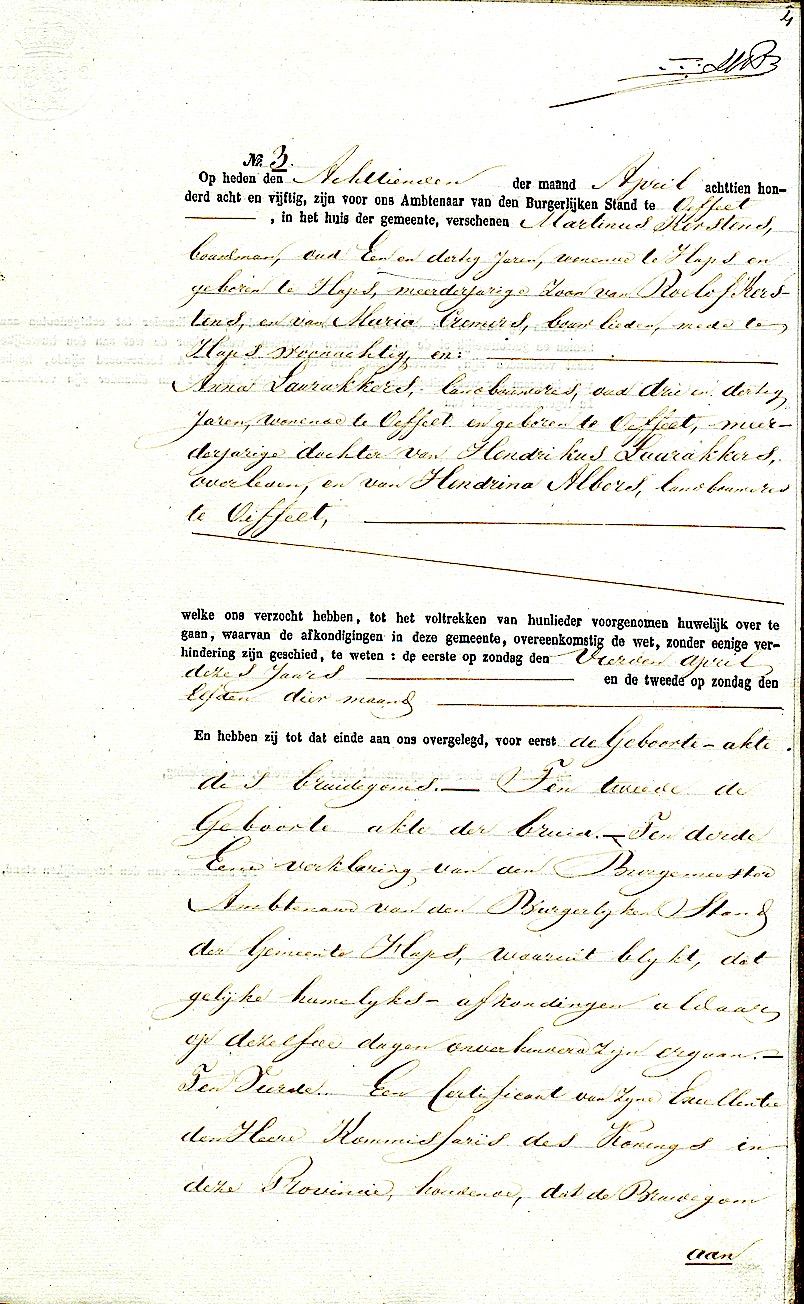 4
№ 3.
Op heden den Achttienden der maand April achttien hon-
derd acht en vijftig, zijn voor ons Ambtenaar van den Burgerlijken Stand te Oeffelt
, in het huis der gemeente, verschenen Martinus Kerstens,
bouwman, oud Een en dertig Jaren, wonende te Haps en
geboren te Haps, meerderjarige Zoon van Roelof Kers-
tens, en van Maria Cremers, bouwlieden, mede te
Haps woonachtig, en:
Anna Laurakkers, landbouweres, oud drie en dertig
Jaren, wonende te Oeffelt en geboren te Oeffelt, meer-
derjarige dochter van Hendrikus Laurakkers,
overleden, en van Hendrina Albers, landbouweres
te Oeffelt,
welke ons verzocht hebben, tot het voltrekken van hunlieder voorgenomen huwelijk over te
gaan, waarvan de afkondigingen in deze gemeente, overeenkomstig de wet, zonder eenige ver-
hindering zijn geschied, te weten : de eerste op zondag den Vierden april
dezes Jaars en de tweede op zondag den
Elfden dier maand
En hebben zij tot dat einde aan ons overgelegd, voor eerst de Geboorte-akte
des bruidegoms.— Ten tweede de
Geboorte akte der bruid.— Ten derde
Eene verklaring van den Burgemeester
Ambtenaar van den Burgerlyken Stand
der Gemeente Haps, waaruit blykt, dat
gelijke huwelyks-afkondingen aldaar
op dezelfde dagen onverhinderd zijn ergaan.—
Ten Vierde. Een Certificaat van Zyne Excellentie
den Heere Kommissaris des Konings in
deze Provincie, houdende, dat de Bruidegom
aan